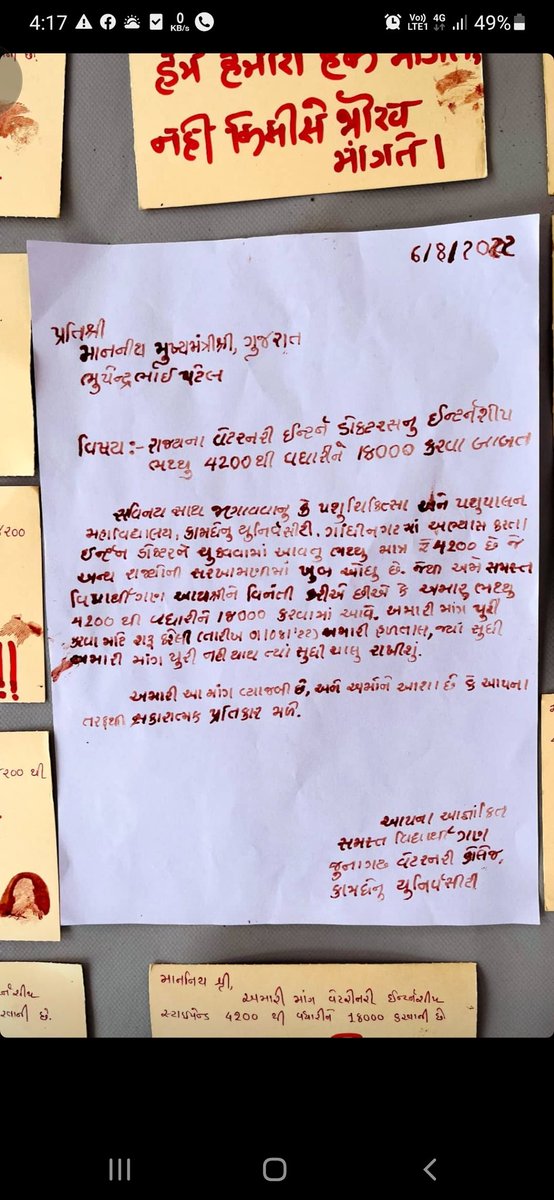 4:17
0
KB/s
Vo))
LTE1
4G
49%
હમ હમારા હક માંગતે,
નહી કિસીસે ભીખ
માંગતે।
6/8/2022
પ્રતિશ્રી
માનનીય મુખ્યમંત્રીશ્રી, ગુજરાત
ભુપેન્દ્રભાઈ પટેલ
વિષય:- રાજ્યના વેટરનરી ઈન્ટર્ન ડોક્ટરસનુ ઈન્ટર્નશીપ
ભથ્થુ 4200થી વધારીને 18000 કરવા બાબત
સવિનય સાથ જણાવવાનુ કે પશુચિકિત્સા અને પશુપાલન
મહાવિદ્યાલય, કામધેનુ યુનિર્વસીટી, ગાંધીનગરમાં અભ્યાસ કરતા
ઈન્ટર્ન ડોક્ટરને ચુકવવામાં આવતુ ભથ્થુ માત્ર ₹ 4200 છે જે
અન્ય રાજ્યોની સરખામણીમાં ખુબ ઓછુ છે. જેથી અમે સમસ્ત
વિદ્યાર્થીગણ આપશ્રીને વિનંતી કરીએ છીએ કે અમારુ ભથ્થુ
4200 થી વધારીને 18000 કરવામાં આવે. અમારી માંગ પુરી
કરવા માટે શરૂ કરેલી અમારી હળતાલ, જ્યાં સુધી
અમારી માંગ પુરી નહી થાય ત્યાં સુધી ચાલુ રાખીશું.
અમારી આ માંગ વ્યાજબી છે, અને અમોને આશા છે કે આપના
તરફથી સકારાત્મક પ્રતિકાર મળે.
આપના આજ્ઞાંકિત
સમસ્ત વિદ્યાર્થી ગણ
જુનાગઢ વેટરનરી કોલેજ,
કામધેનુ યુનિર્વસીટી
૨૦૦
!!
૨૦૦ થી
માનનિય શ્રી,
અમારી માંગ વેટરીનરી ઈન્ટર્નશીપ
સ્ટાઈપેન્ડ 4200 થી વધારીને 18000 કરવાની છે